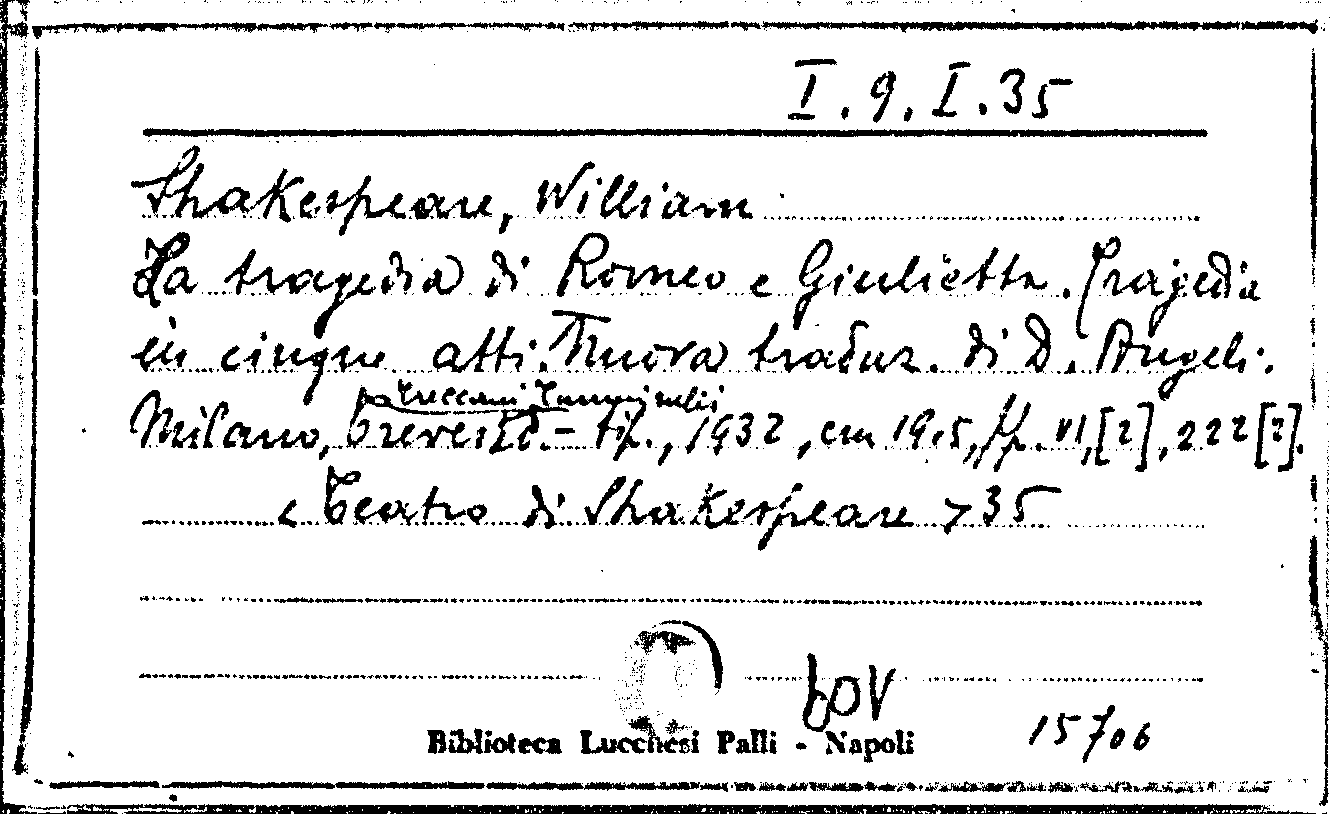 I.9.I.35
Shakespeare, William
La tragedia di Romeo e Giulietta. Tragedia
in cinque atti. Nuova traduz. di D. Angeli.
Treccani Tumminelli
Milano, ed. - tip., 1932, cm 19.5, pp. VI,[2], 222 [2].
< Teatro di Shakespeare > 35
bov
Biblioteca Lucchesi Palli - Napoli
15706